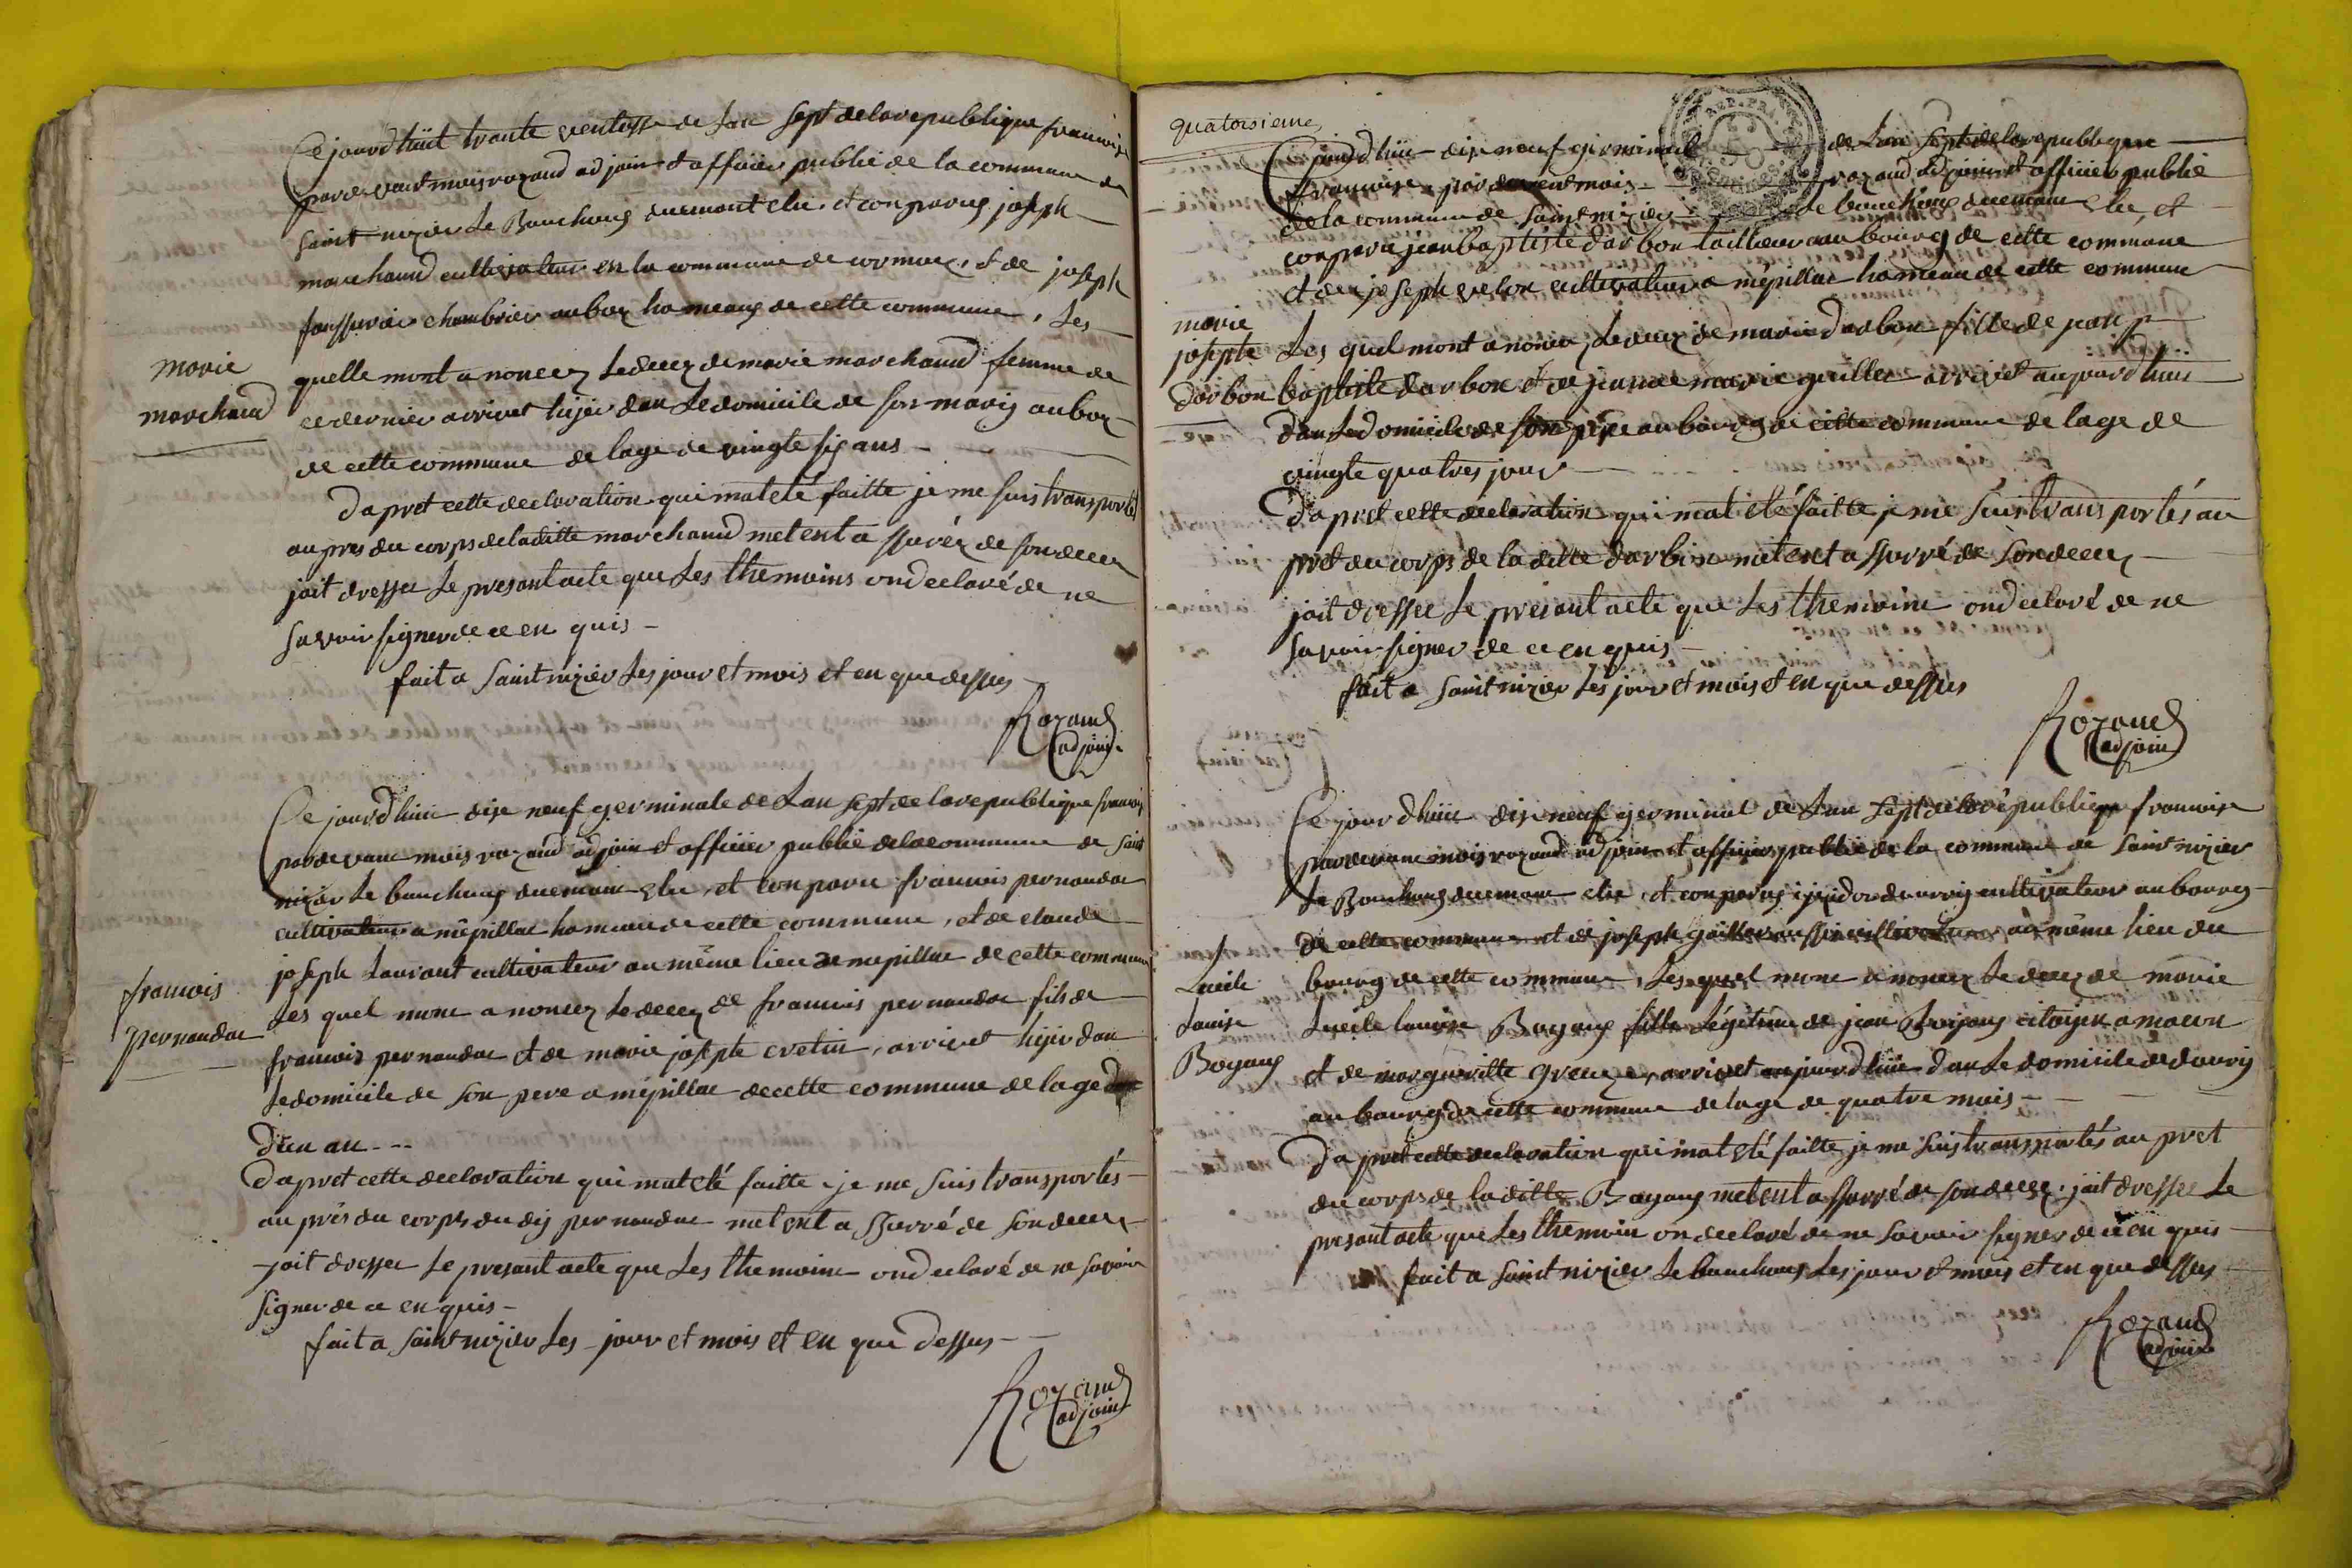 Ce jourd'huit trante ventosse de l'an sept de la republique francoise
pardevant mois rozand adjoin et officier public de la commune de
saint nizier le Bouchoug duemant elu, et conparug joseph
marchand cultivateur en la commune de cormoz, et de joseph
chambrier au boz hameaug de cette commune, les
quelle mont anoncez le decez de marie marchand femme de
ce dernier arrivet hijer dan le domicile de son marij au boz
de cette commune de lage de vingte sij ans
marie
marchand
Dapret cette declaration qui mat eté faitte je me suis transporté
au pres du corps de laditte marchand metent assuréz de son decez
jait dresser le presant acte que les themoins on declaré de ne
savoir signer de ce en quis
fait a saint nizier les jour et mois et en que dessus
Rozand
adjoin
Ce jourd'huie dixe neuf germinale de l'an sept de la republique francois
pardevanc mois rozand adjoin et officier public de la commune de saint
nizier le bouchoug duemanc elu, et conparu francois pernaudac
cultivateur a mépillac hameau de cette commune, et de claude
joseph laurant cultivateur au même lieu de mepillac de cette commune
les quel monc anoncez le decez de francois pernaudac fils de
francois pernaudac et de marie josepte cretin, arrivet hijer dan
le domicile de son pere a mépillac de cette commune de lage
d'eun an
francois
pernaudac
Dapret cette declaration qui mat eté faitte je me suis transportés
au près du corps dudij pernaudac metent assurré de son decez
jait dresser le presant acte que les themoins on declaré de ne savoir
signer de ce en quis
fait a saint nizier les jour et mois et en que dessus
Rozand
adjoin
quatorsieme
Ce jourd'huie dixe neuf germinale de l'an sept de la republique
francoise pardevent mois rozand adjoint et officier public
de la commune de saint nizier le bouchoug duemant elu, et
conparu jean baptiste darbon tailleur au bourg de cette commune
et de joseph velon cultivateur a mépillac hameau de cette commune
les quel mont anoncez le decez de marie darbon fille de jean
baptiste darbon et de jeanne marie guillet arrivet aujourd'huie
dan le domicile de son père au bourg de cette commune de lage de
vingte quatres jour
marie
josepte
darbon
Dapret cette declaration qui mat eté faitte je me suis transportés au
pret du corps de la ditte darbon metent assurré de son decez
jait dresser le presant acte que les themoins on declaré de ne
savoir signer de ce en quis
fait a saint nizier les jour et mois et en que dessus
Rozand
adjoin
Ce jourd'huie dixe neuf germinal de l'an sept de la republique francoise
pardevanc mois rozand adjoin et officier public de la commune de saint nizier
le Bouchoug duemanc elu et conparug cultivateur au bourg
de cette commune et de joseph guillet aussi cultivateur au même lieu du
bourg de cette commune, les quel monc anoncez le decez de marie
lucile louise Boyaug fille légitime de jean Boyaug citoijen a macon
et de margueritte greuze, arrivet aujourd'huie dan le domicile de dourij
au bourg de cette commune de lage de quatre mois
Lucile
Louise
Boyaug
Dapret cette declaration qui mat eté faitte je me suis transportés au pret
du corps de la ditte Boyaug metent assurré de son decez. jait dresser le
presant acte que les themoins on declaré de ne savoir signer de ce en quis
fait a saint nizier le bouchoug les jour et mois et en que dessus
Rozand
adjoin